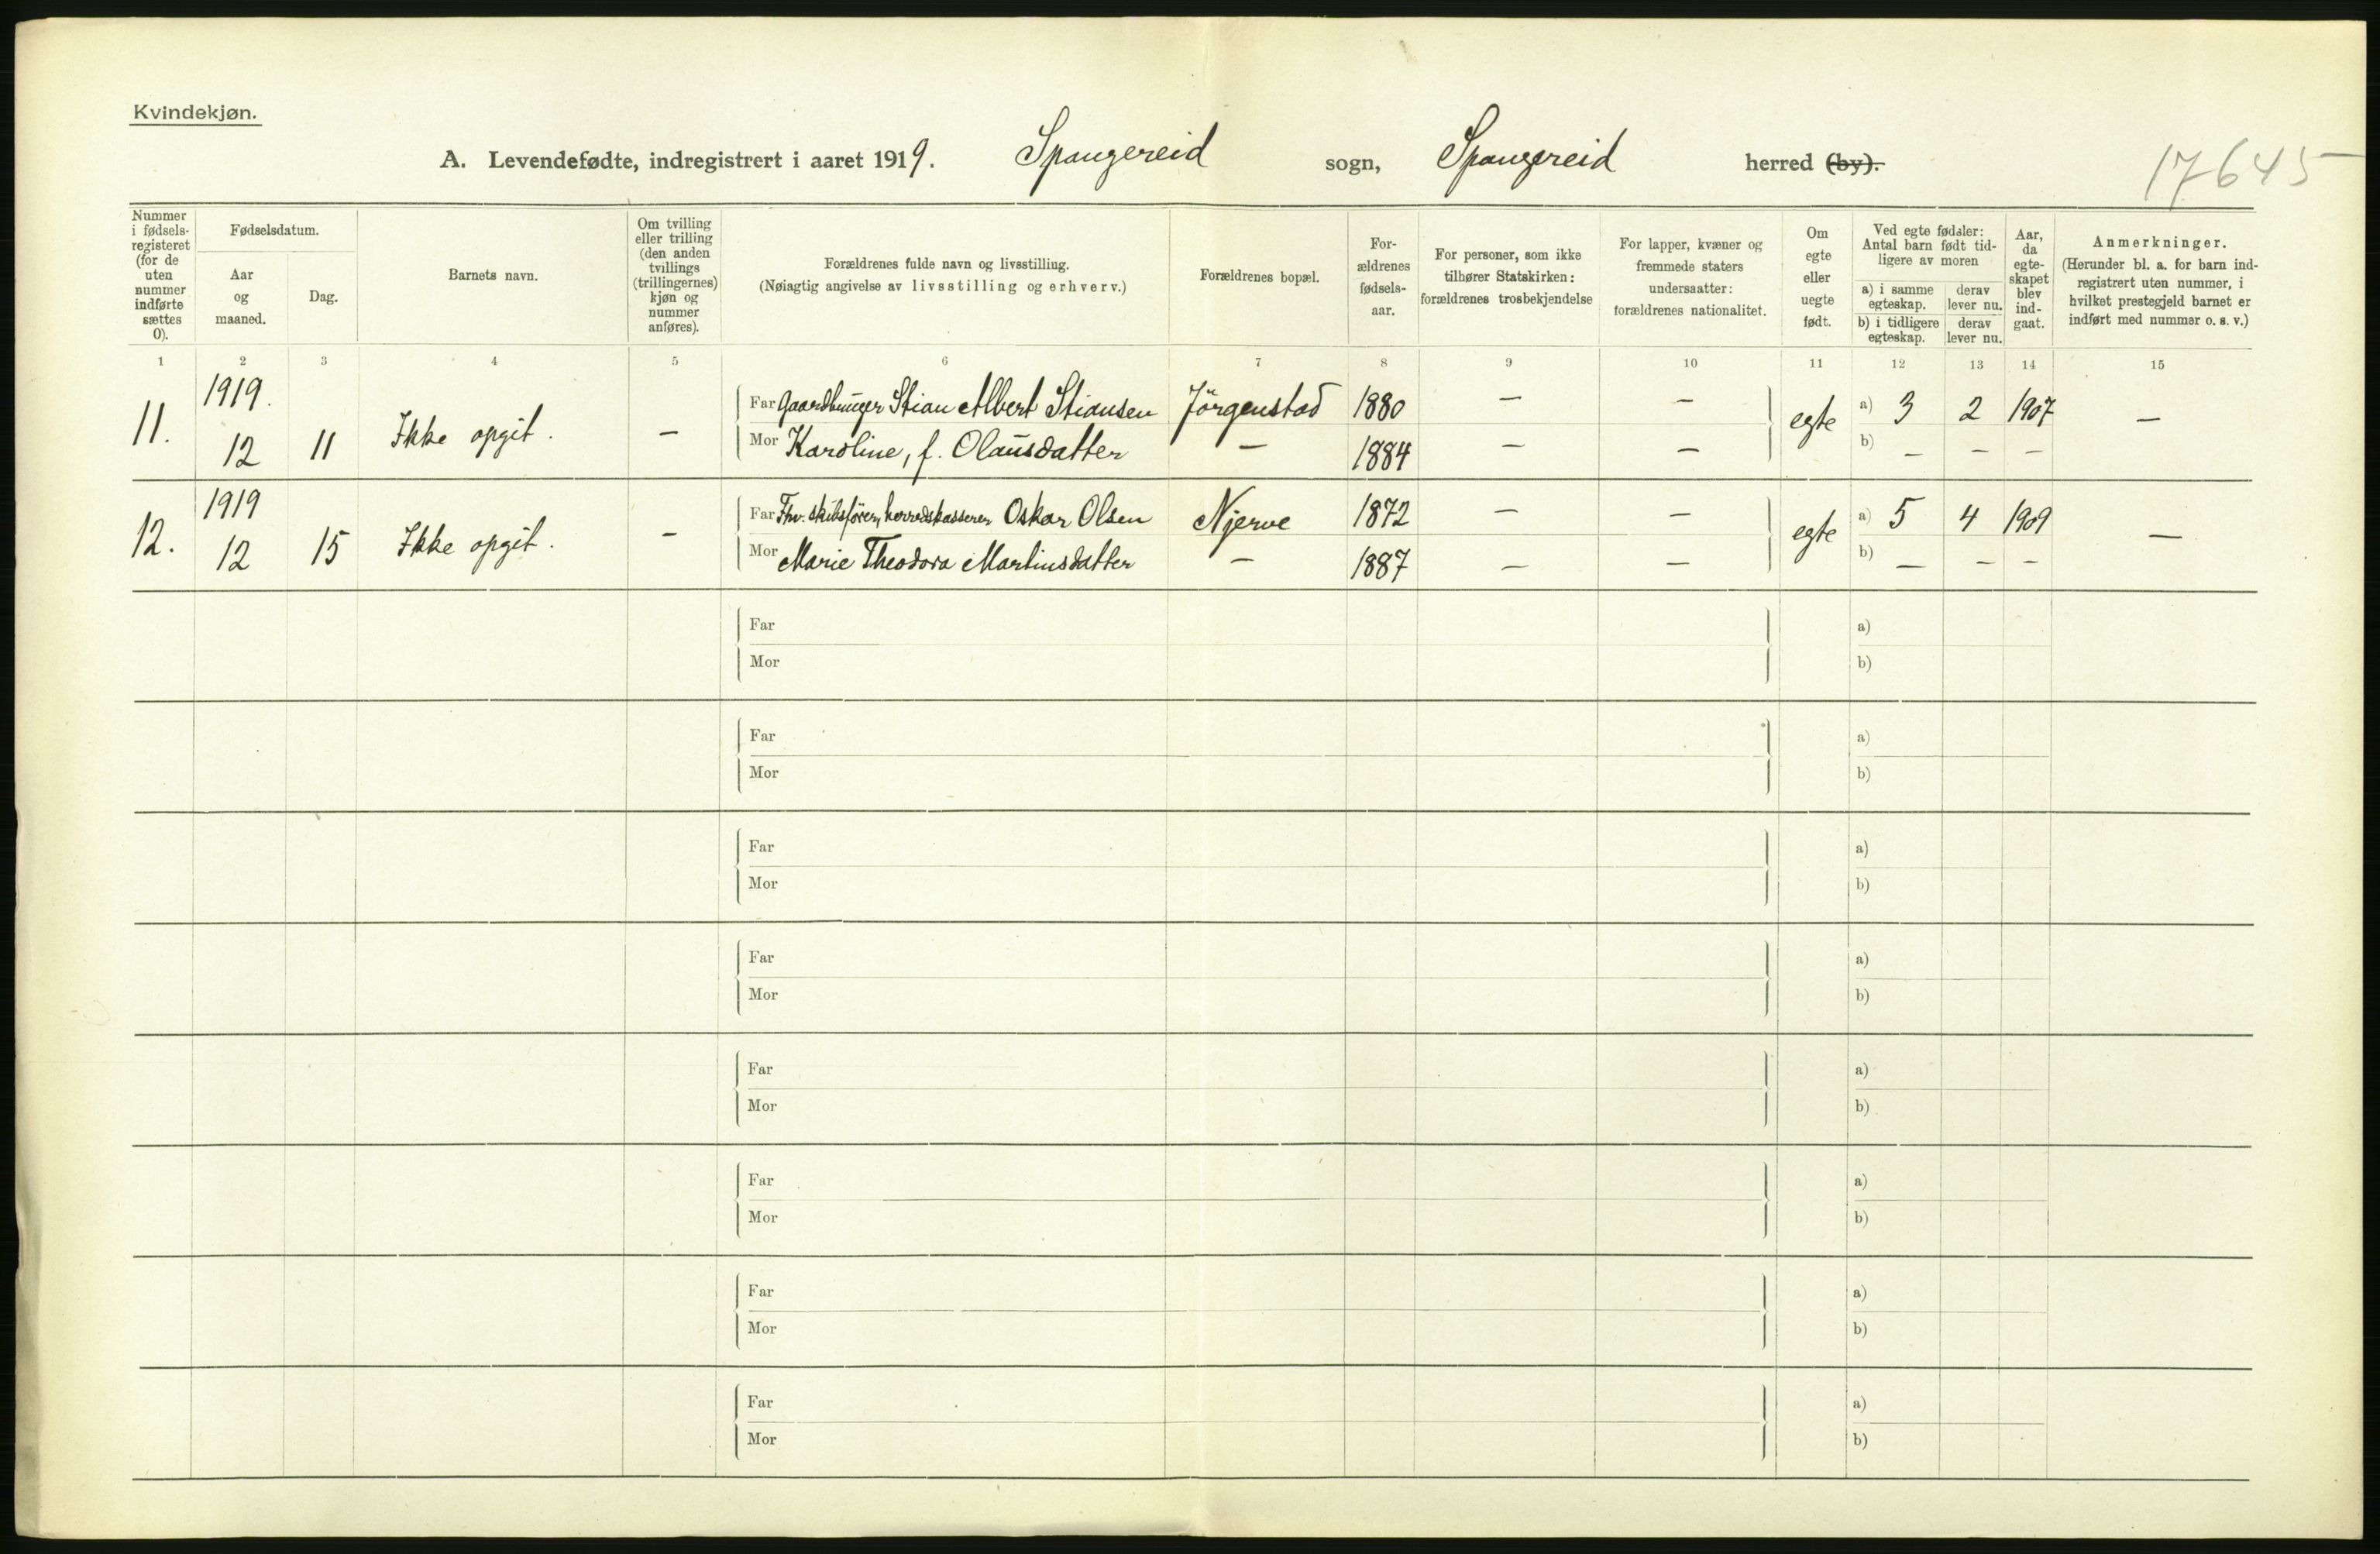 Kvindekjøn.
A. Levendefødte, indregistrert i aaret 1919. Spangereid sogn, Spangereid herred (by).
17645
Nummer i fødsels-registeret (for de uten nummer indførte sættes 0).
Fødselsdatum.
Aar og maaned.
Dag.
Barnets navn.
Om tvilling eller trilling (den anden tvillings (trillingernes) kjøn og nummer anføres).
Forældrenes fulde navn og livsstilling.
(Nøiagtig angivelse av livsstilling og erhverv.)
Forældrenes bopæl.
For-ældrenes fødsels-aar.
For personer, som ikke tilhører Statskirken: forældrenes trosbekjendelse
For lapper, kvæner og fremmede staters undersaatter: forældrenes nationalitet.
Om egte eller uegte født.
Ved egte fødsler: Antal barn født tid-ligere av moren
a) i samme egteskap.
derav lever nu.
b) i tidligere egteskap.
derav lever nu.
Aar, da egte-skapet blev ind-gaat.
Anmerkninger.
(Herunder bl. a. for barn ind-registrert uten nummer, i hvilket prestegjeld barnet er indført med nummer o. s. v.)
1 2 3 4 5 6 7 8 9 10 11 12 13 14 15
11. 1919. 12 11 Ikke opgit. —
Far Gaardbruger Stian Albert Stiansen Jörgenstad 1880 — — egte a) 3 2 1907 —
Mor Karoline, f. Olausdatter — 1884 — — b) — — —
12. 1919 12 15 Ikke opgit. —
Far Fhv. skibsförer, herredskasserer Oskar Olsen Njerve 1872 — — egte a) 5 4 1909 —
Mor Marie Theodora Martinsdatter — 1887 — — b) — — —
Far a)
Mor b)
Far a)
Mor b)
Far a)
Mor b)
Far a)
Mor b)
Far a)
Mor b)
Far a)
Mor b)
Far a)
Mor b)
Far a)
Mor b)